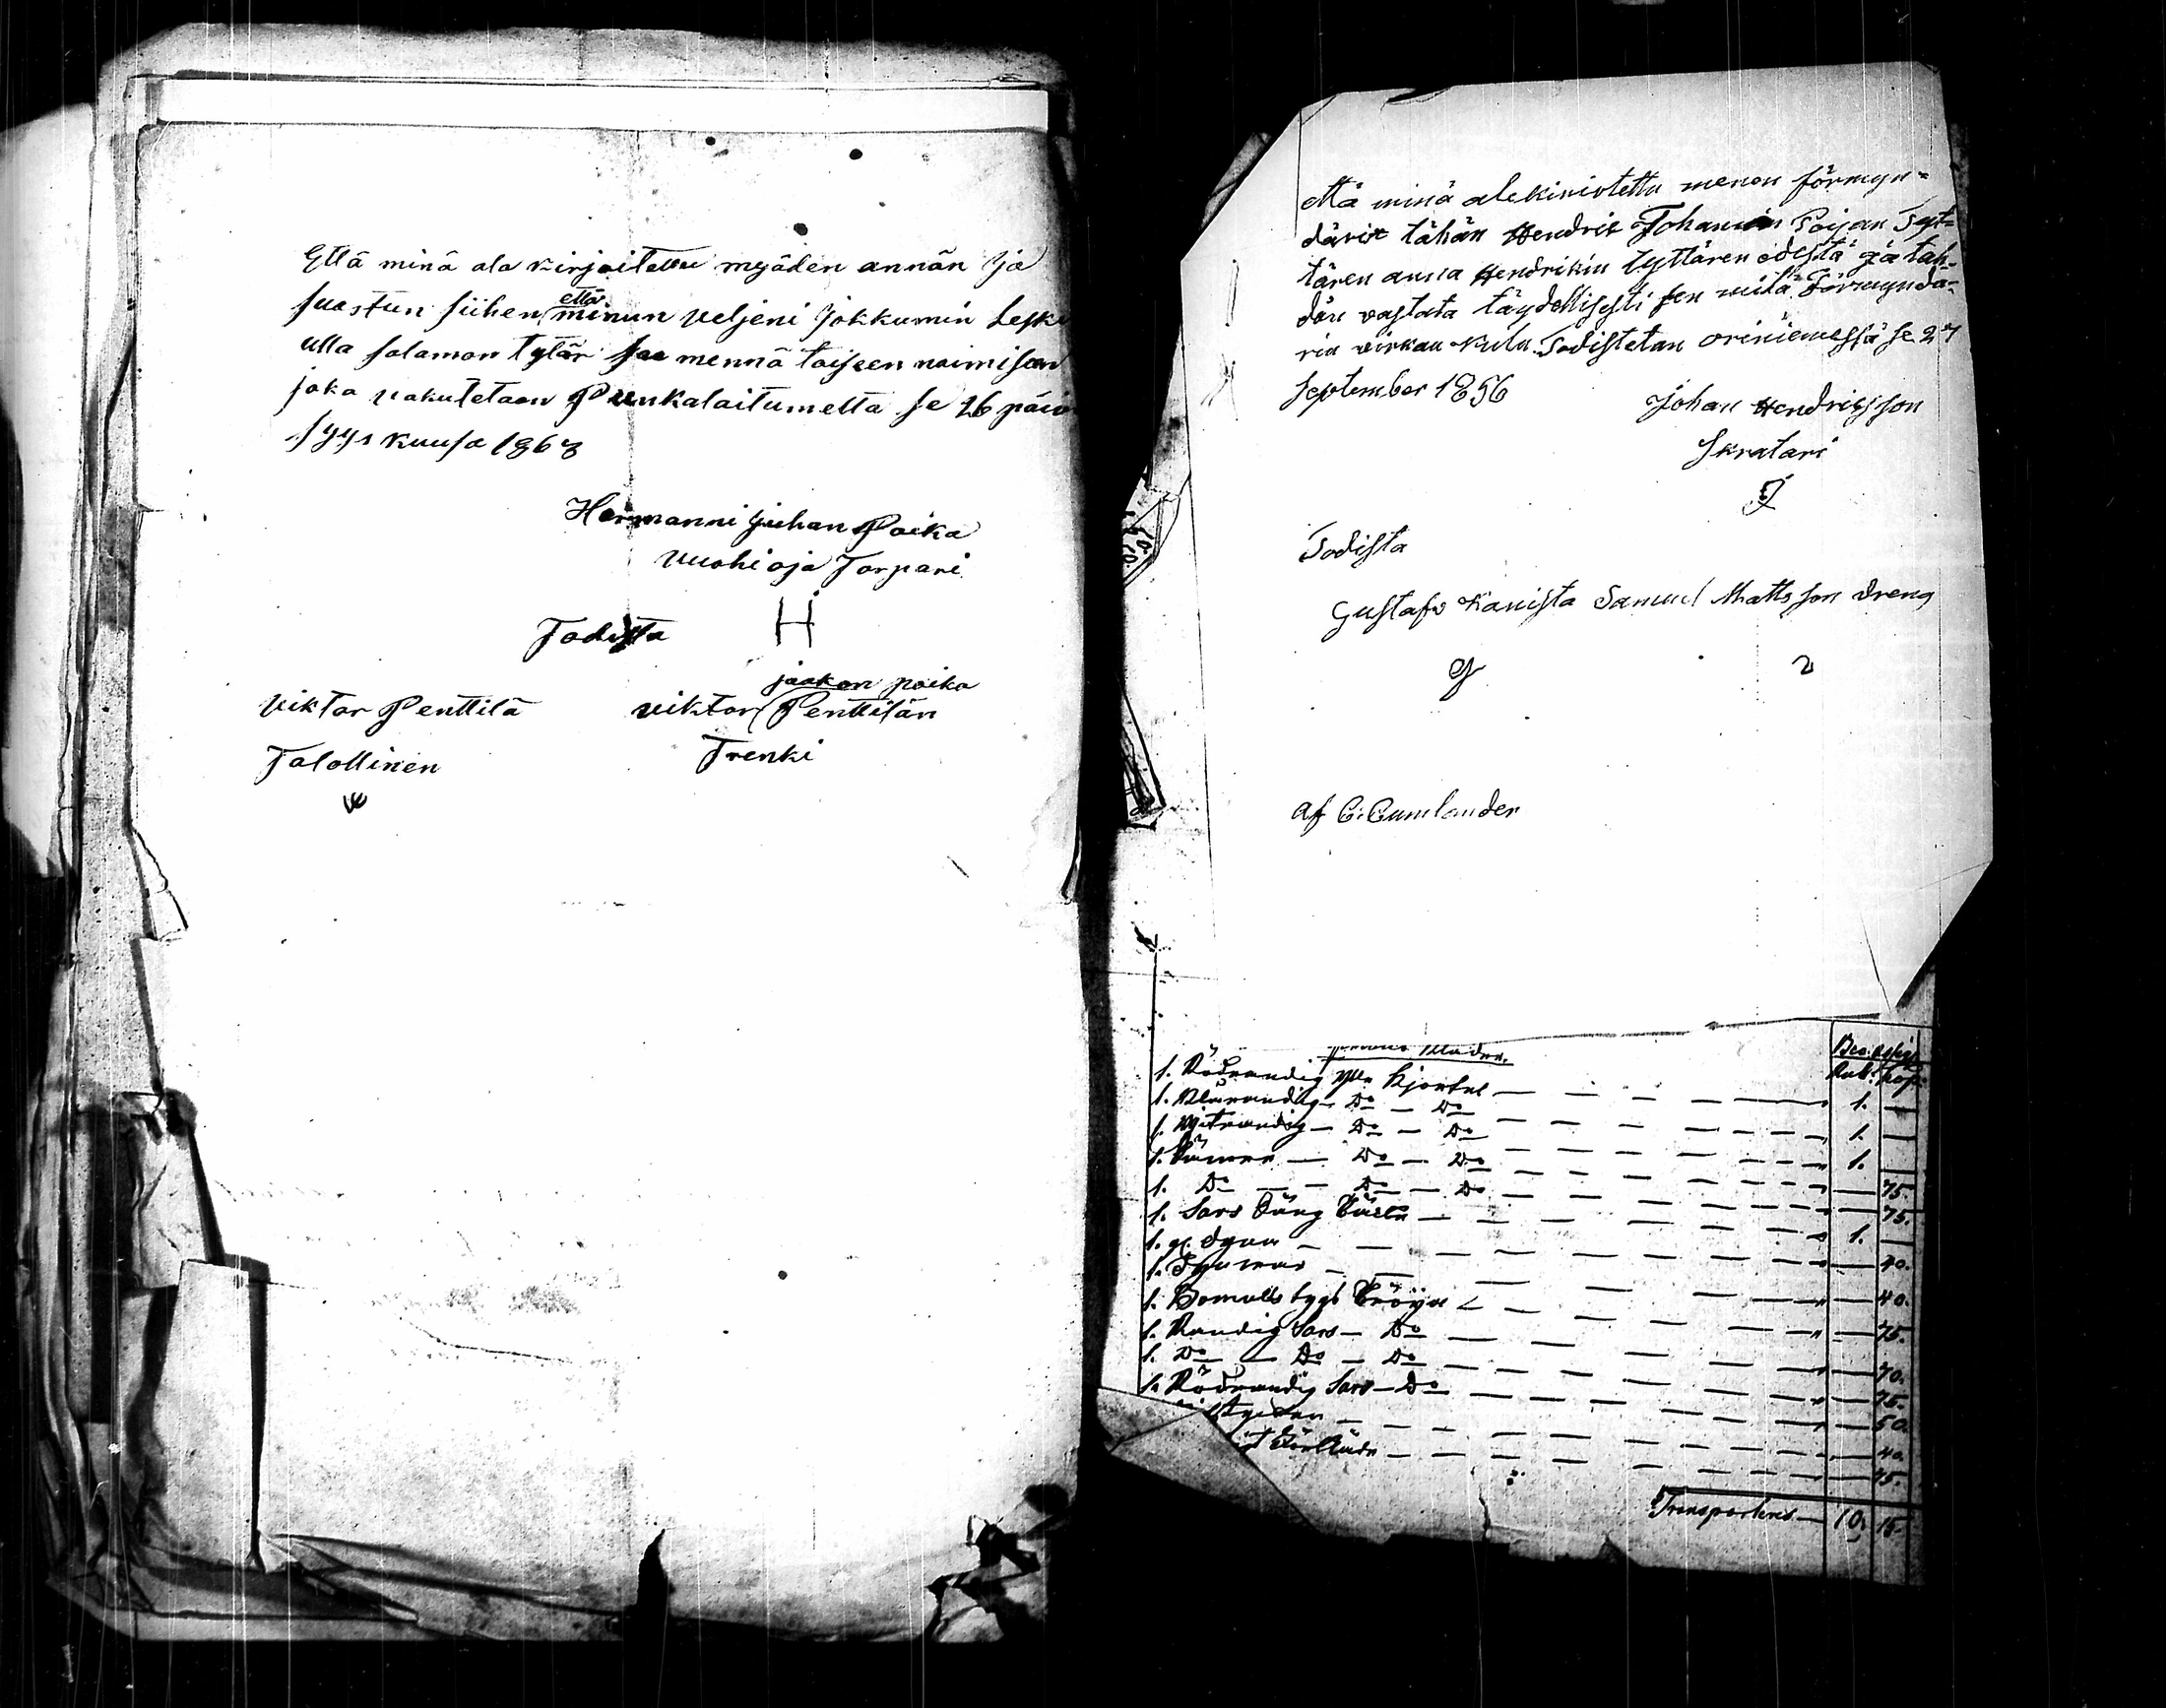 Että minä ala kirjoitettu myöden annän ja
suostun siihen että minun veljeni Jokkumin Leski
ulla salamon tytär saa mennä toiseen naimisen
joka vakutetaan Punkalaitumelta se 26 päiv
syys kuusa 1868
Hermanni Juhan Poika
Vuohi oja Torpari
Todista H
jaakon poika
Viktor Penttilä viktor Penttilän
Talollinen Trenki
että minä alekirioitettu menen förmyn=
därix tähän Hendrik Johanin Poijan Tyt=
tären anna Hendrikin tyttären edestä ja tah=
don vastata täydellisesti sen mitä Förmyndä=
rin virkan kulu. Todistetan oriniemessä se 27
September 1856
Johan Hendriksson
Skratari
Todista
Gustafv Kanista Samuel Matts son dreng
af C: Cumlander
Rub: Kop:
1. Rödrandig Ylle Kjortel — 1. —
1. Blårandig — Do — Do — 1. —
1. Hvitrandig — Do — Do — 1. —
1. — Do — Do — 75.
1. Do — Do — Do — 75.
1. Sars — 1. —
1. gl. dyna — 40.
1. — 40.
1. Bomulls tygs Tröija — 75.
1. Randig Sars — Do — 70.
1. Do — Do — Do — 75.
1. Rödrandig Sars — Do — 50.
— 40.
Förkläde — 75.
Transporteras — 10. 15.